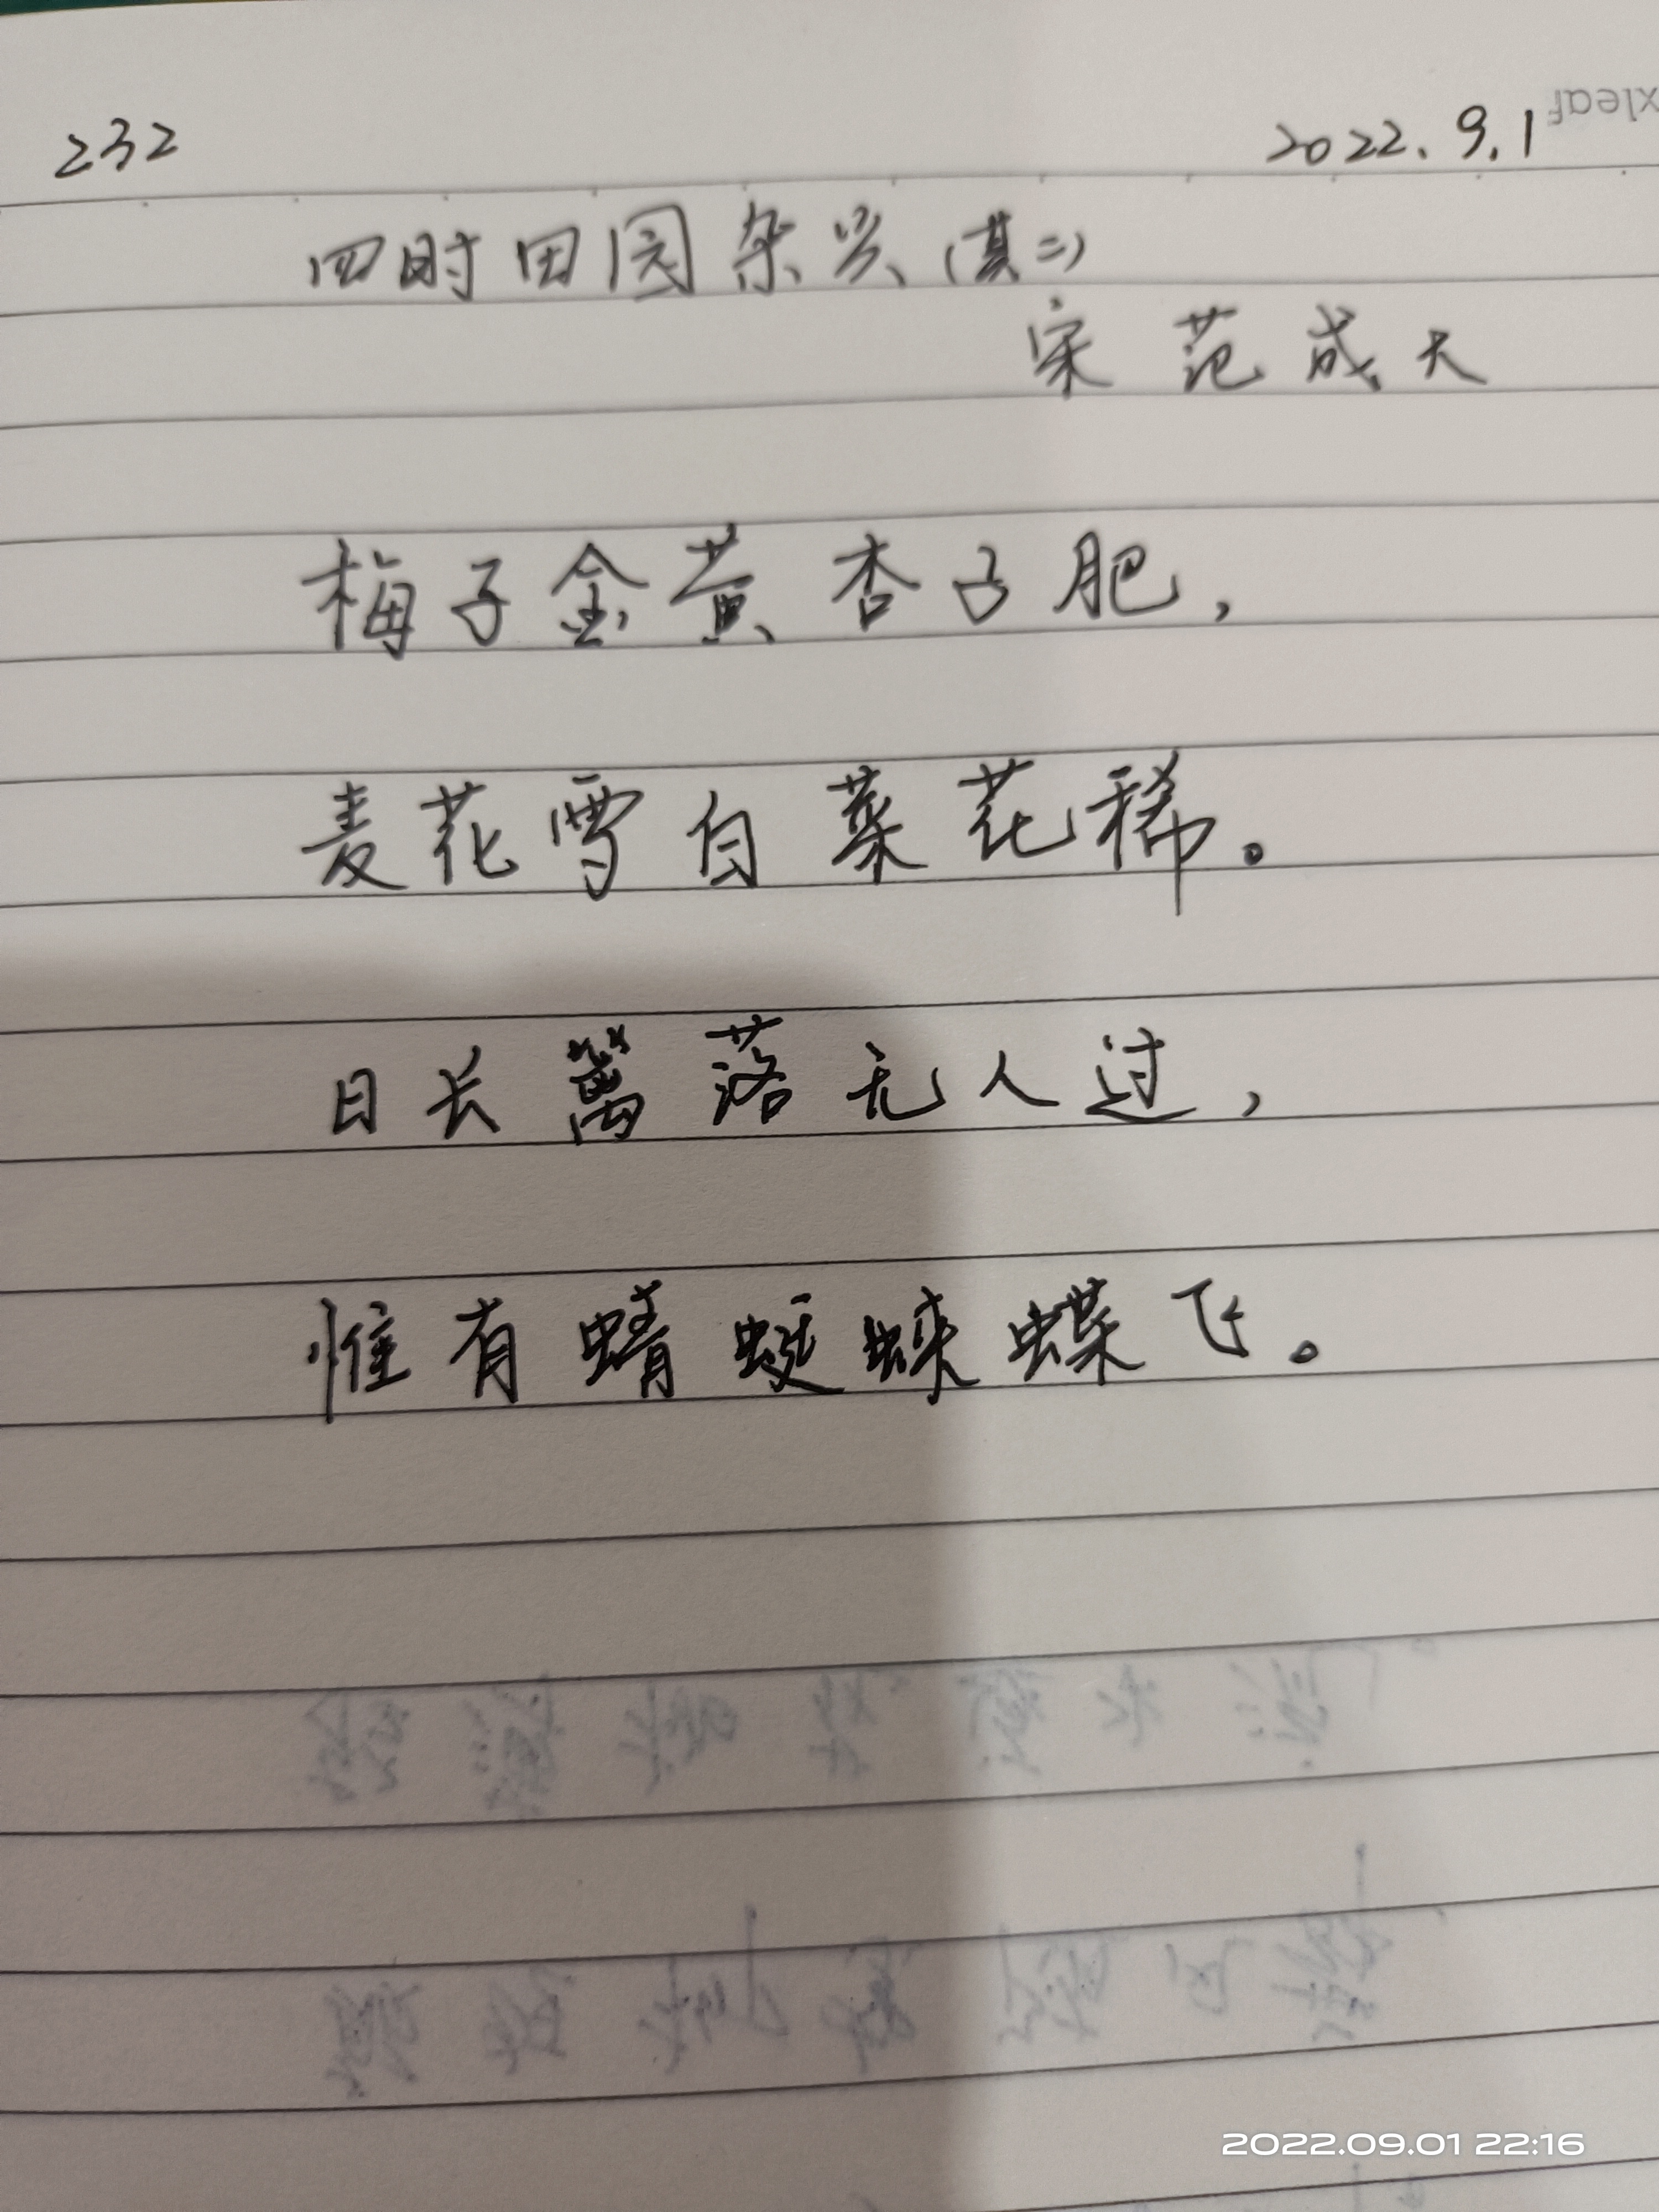 232
2022.9.1
xleaf
四时田园杂兴(其二)
宋 范成大
梅子金黄杏子肥,
麦花雪白菜花稀。
日长篱落无人过,
惟有蜻蜓蛱蝶飞。
2022.09.01 22:16